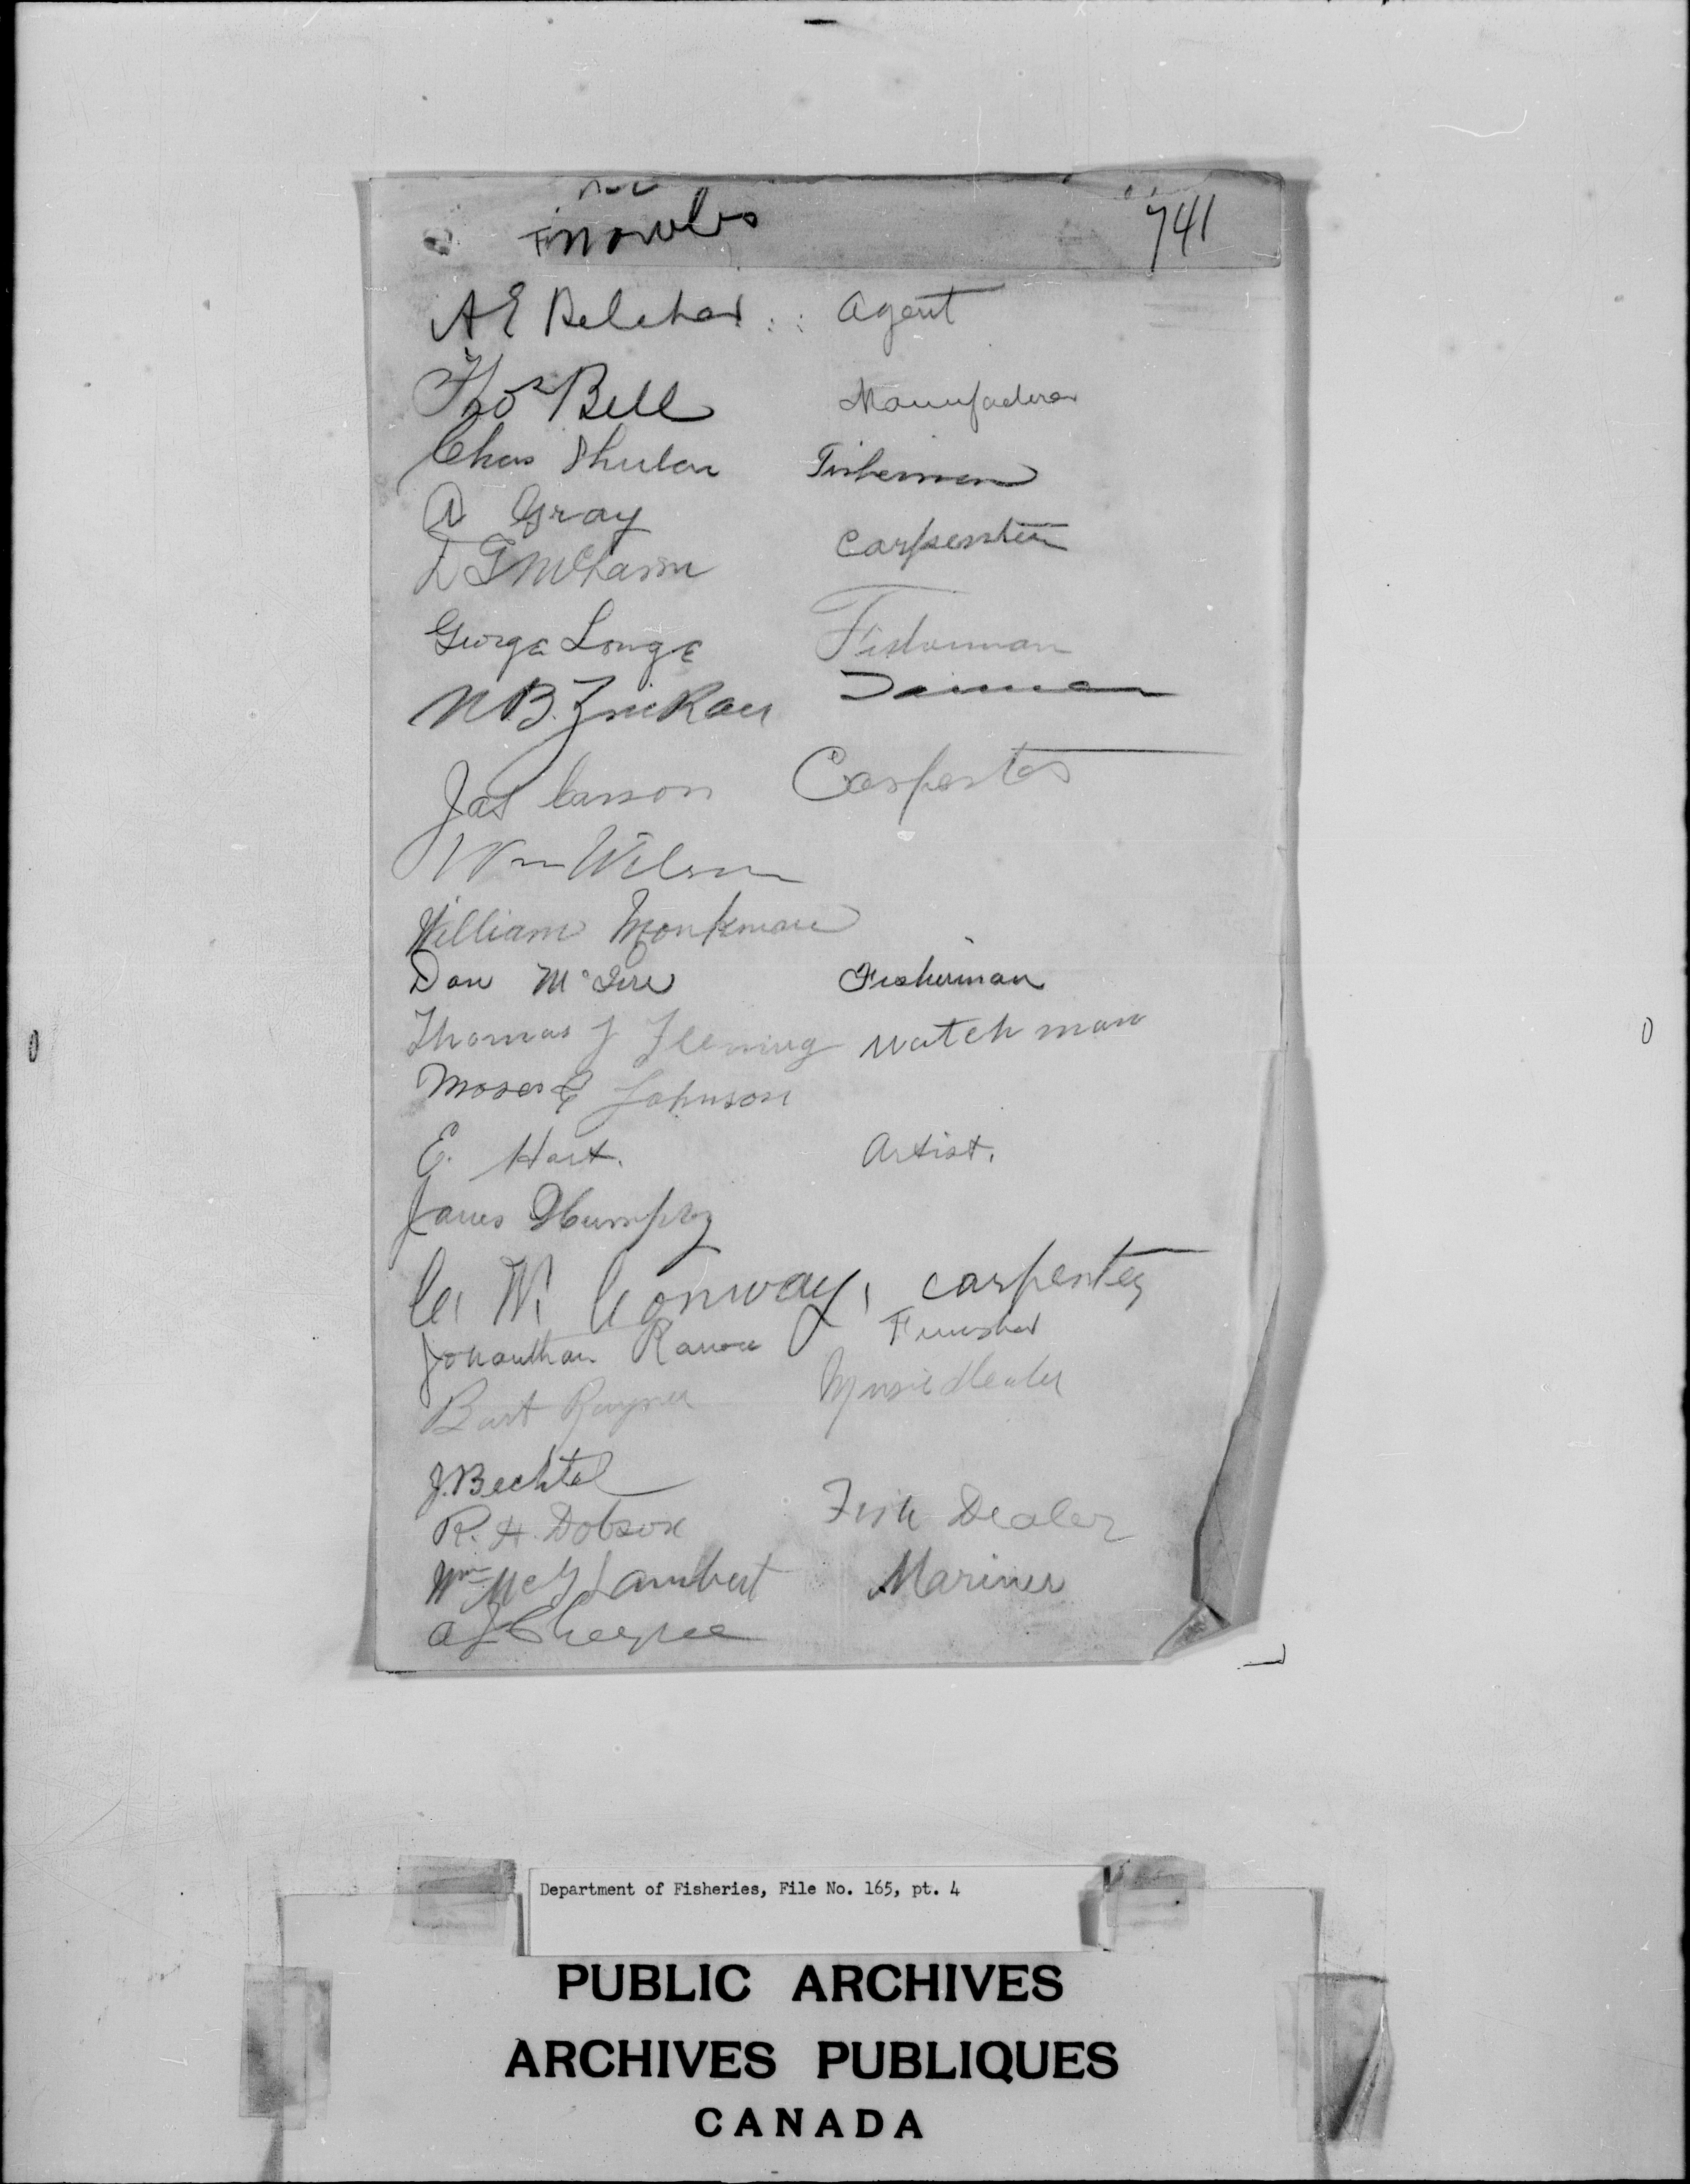 741
A E Belcher : : Agent
Thos Bell Manufacturer
Chas Fisherman
A Gray
carpenter
George Longe Fisherman
N B. Zinkan
Jas Carson Carpenter
Wm Wilson
William Monkman
Dan Fisherman
Thomas J Fleming watch man
Moses Johnson
E. Hart. Artist.
James Humphry
C. W. Conway, carpenter
Jonauthan Finisher
Bart Rayner Music dealer
J. Bechtel
R. H. Dobson Fish Dealer
Wm McG Lambert Mariner
Department of Fisheries, File No. 165, pt. 4
PUBLIC ARCHIVES
ARCHIVES PUBLIQUES
CANADA